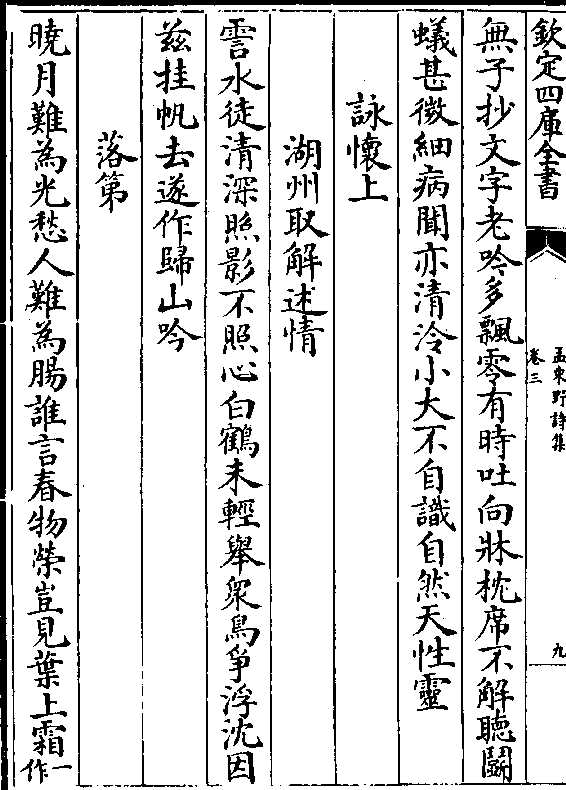 欽定四庫全書
孟東野詩集
卷三
九
無子抄文字老吟多飄零有時吐向牀枕席不解聽鬭
蟻甚微細病聞亦清泠小大不自識自然天性靈
詠懷上
湖州取解述情
霅水徒清深照影不照心白鶴未輕舉衆鳥爭浮沈因
兹挂帆去遂作歸山吟
落第
曉月難為光愁人難為腸誰言春物榮豈見葉上霜一作